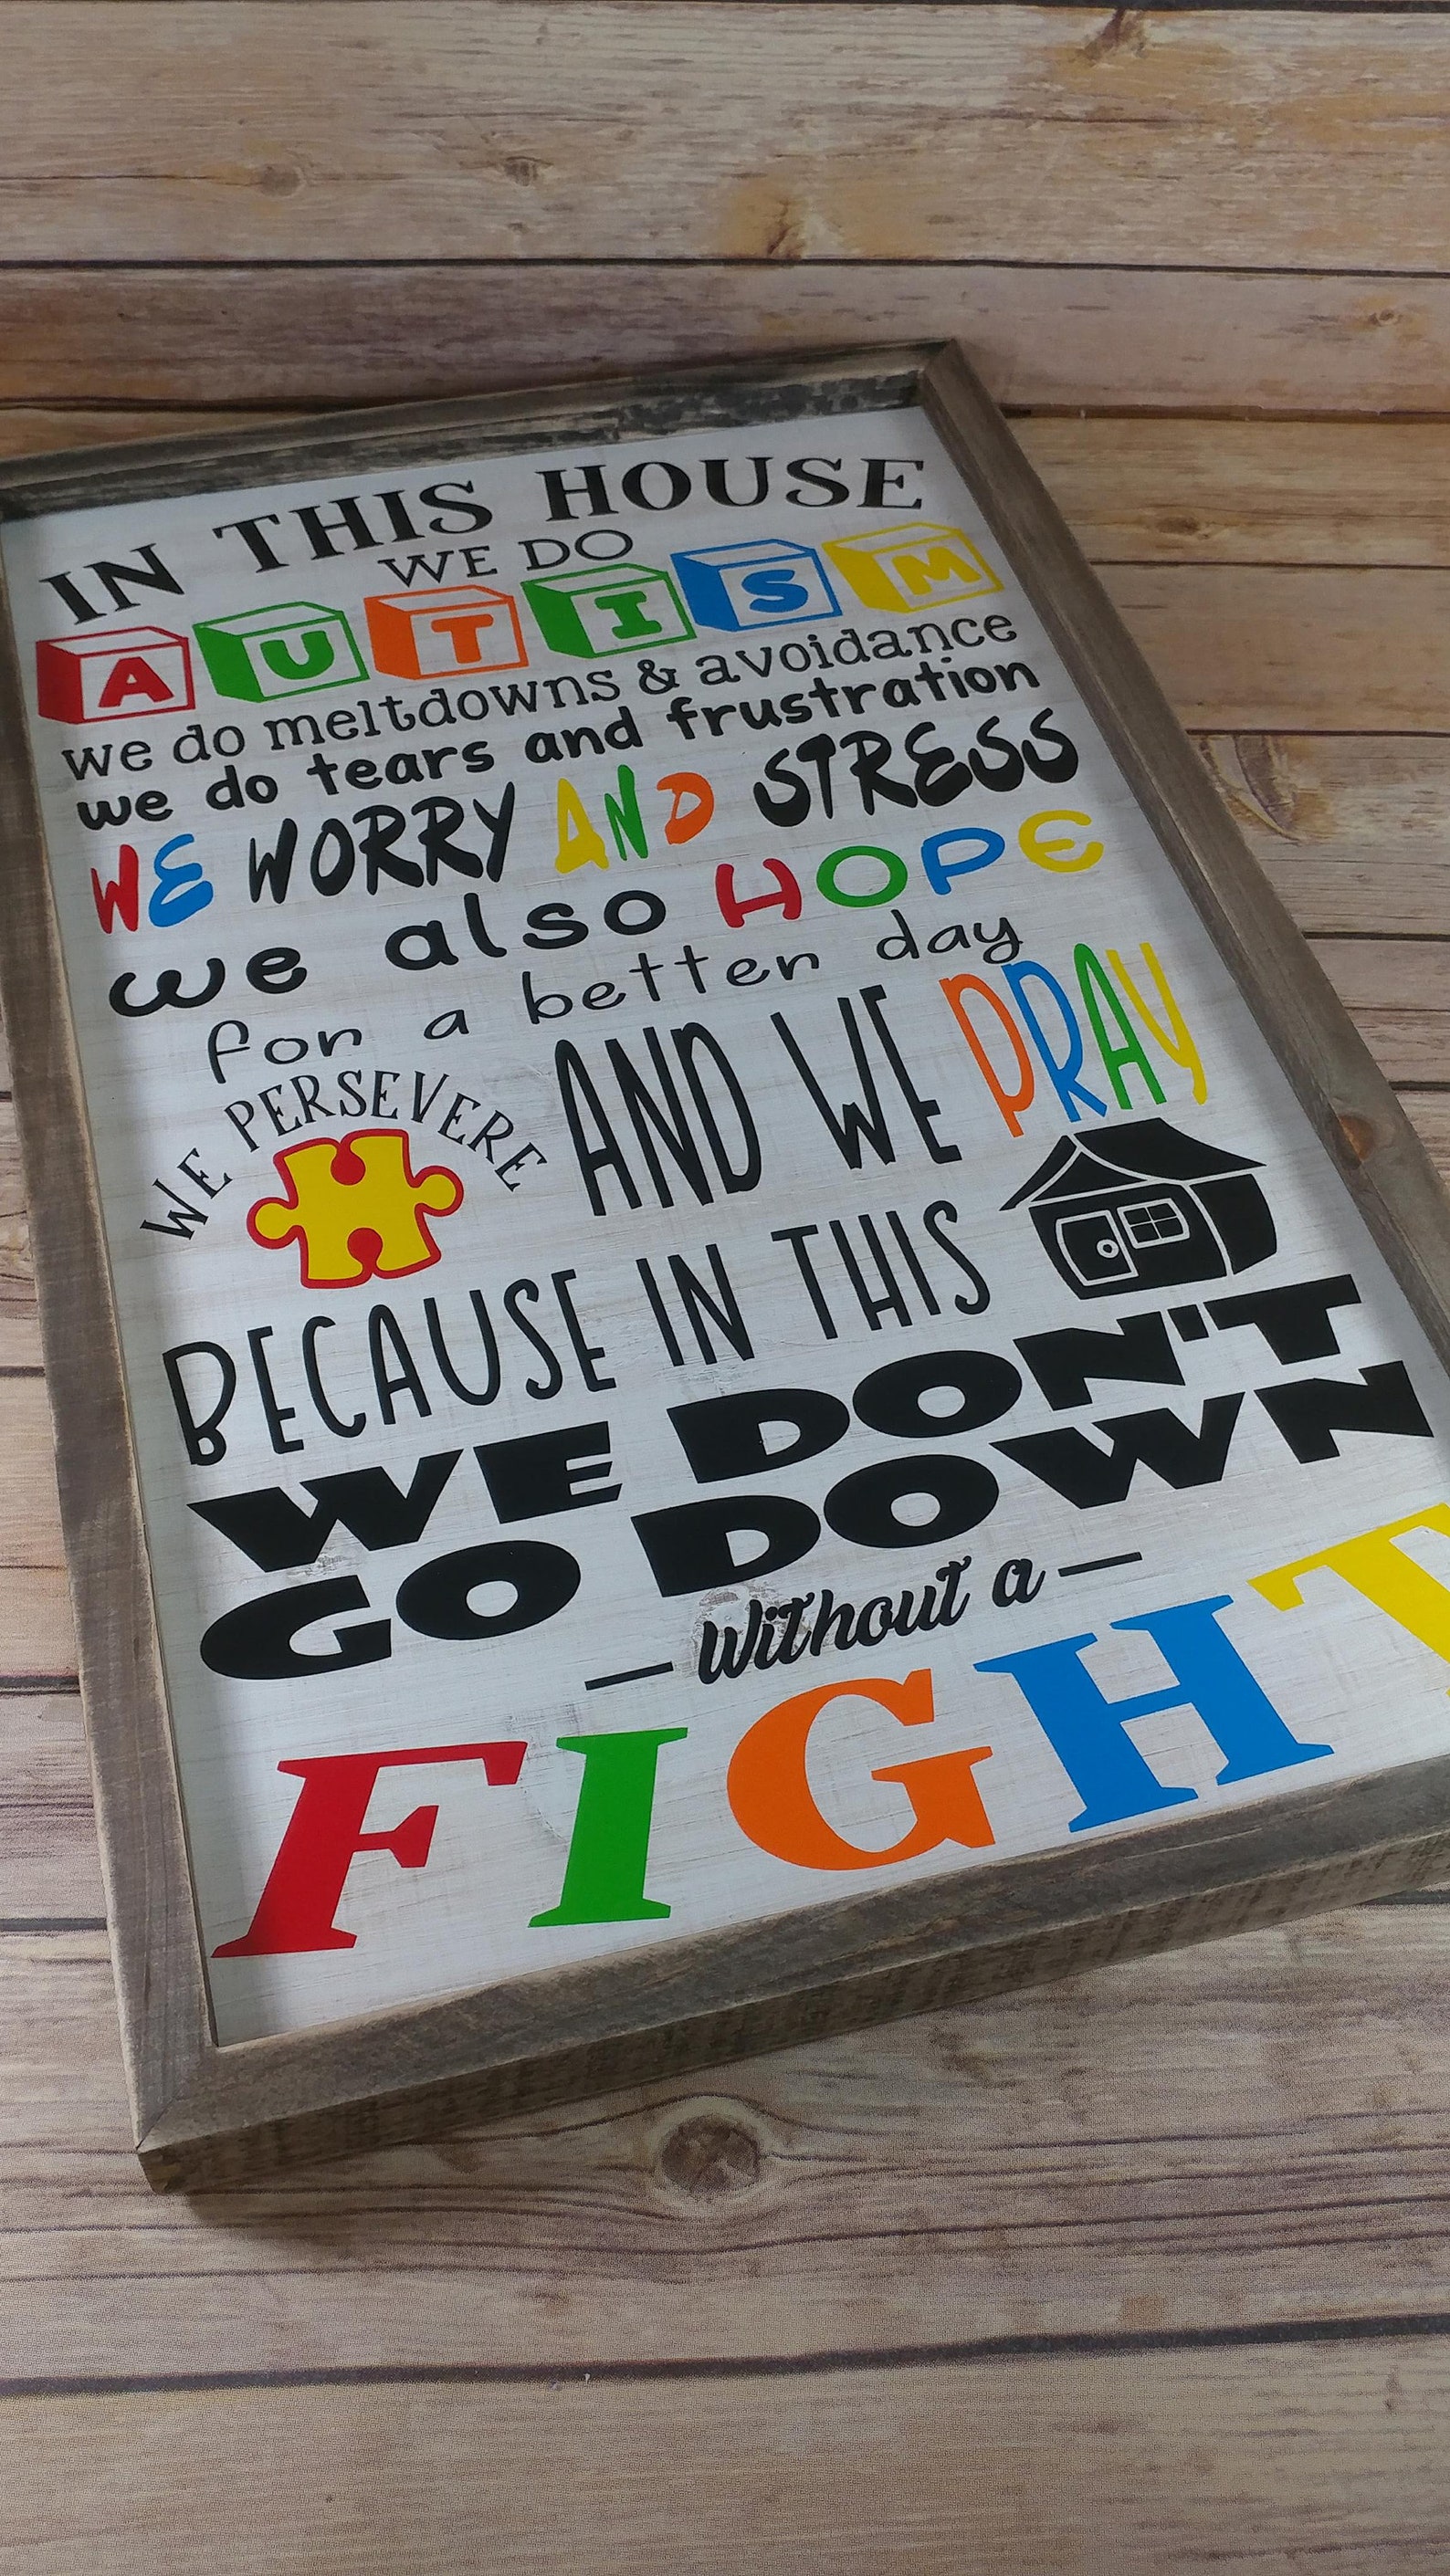 IN THIS HOUSE
WE DO
AUTISM
we do meltdowns & avoidance
we do tears and frustration
WE WORRY AND STRESS
we also HOPE
for a better day
WE PERSEVERE
AND WE PRAY
BECAUSE IN THIS
WE DON'T
GO DOWN
without a
FIGHT